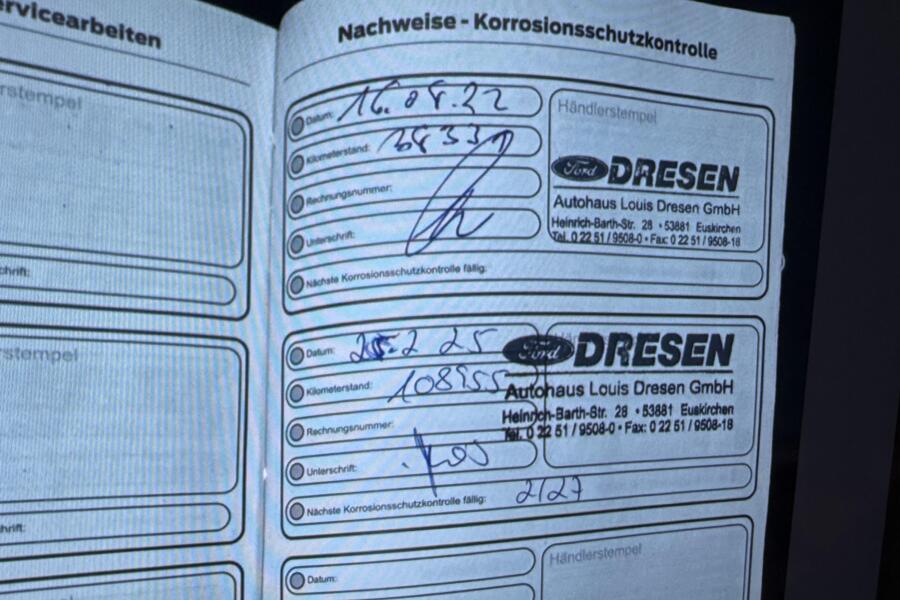 ervicearbeiten
rstempel
chrift:
stempel
hrift:
Nachweise - Korrosionsschutzkontrolle
Datum: 16.08.22
Kilometerstand:
Rechnungsnummer:
Unterschrift:
Nächste Korrosionsschutzkontrolle fällig:
Händlerstempel
Ford DRESEN
Autohaus Louis Dresen GmbH
Heinrich-Barth-Str. 28 • 53881 Euskirchen
Tel. 0 22 51 / 9508-0 • Fax: 0 22 51 / 9508-18
Datum: 25.2 25
Kilometerstand: 108955
Rechnungsnummer:
Unterschrift:
Nächste Korrosionsschutzkontrolle fällig: 2/27
Ford DRESEN
Autohaus Louis Dresen GmbH
Heinrich-Barth-Str. 28 • 53881 Euskirchen
Tel. 0 22 51 / 9508-0 • Fax: 0 22 51 / 9508-18
Datum:
Händlerstempel